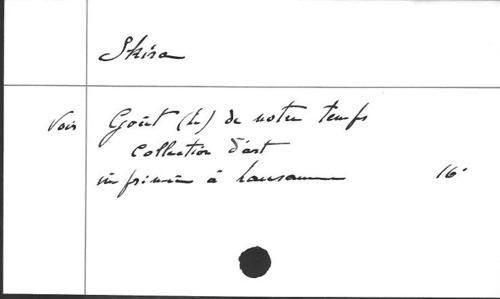 Skira
Voir Goût (Le) de notre temps
Collection d'art
imprimée à Lausanne 16°